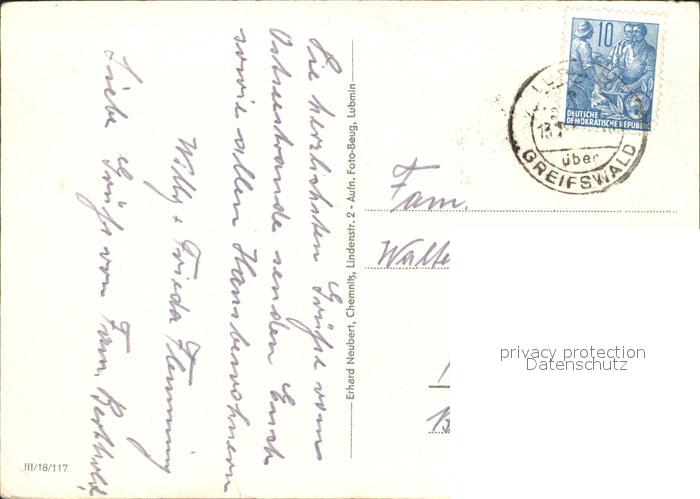 Die herzlichsten Grüße vom
Ostseestrande senden Euch
sowie allen Hausbewohnern
Willy + Frieda Flemming
Liebe Grüße von Fam. Berthold
Erhard Neubert, Chemnitz, Lindenstr. 2 - Aufn. Foto-Beug, Lubmin
III/18/117
10
DEUTSCHE
DEMOKRATISCHE REPUBLIK
über
GREIFSWALD
Fam.
privacy protection
Datenschutz